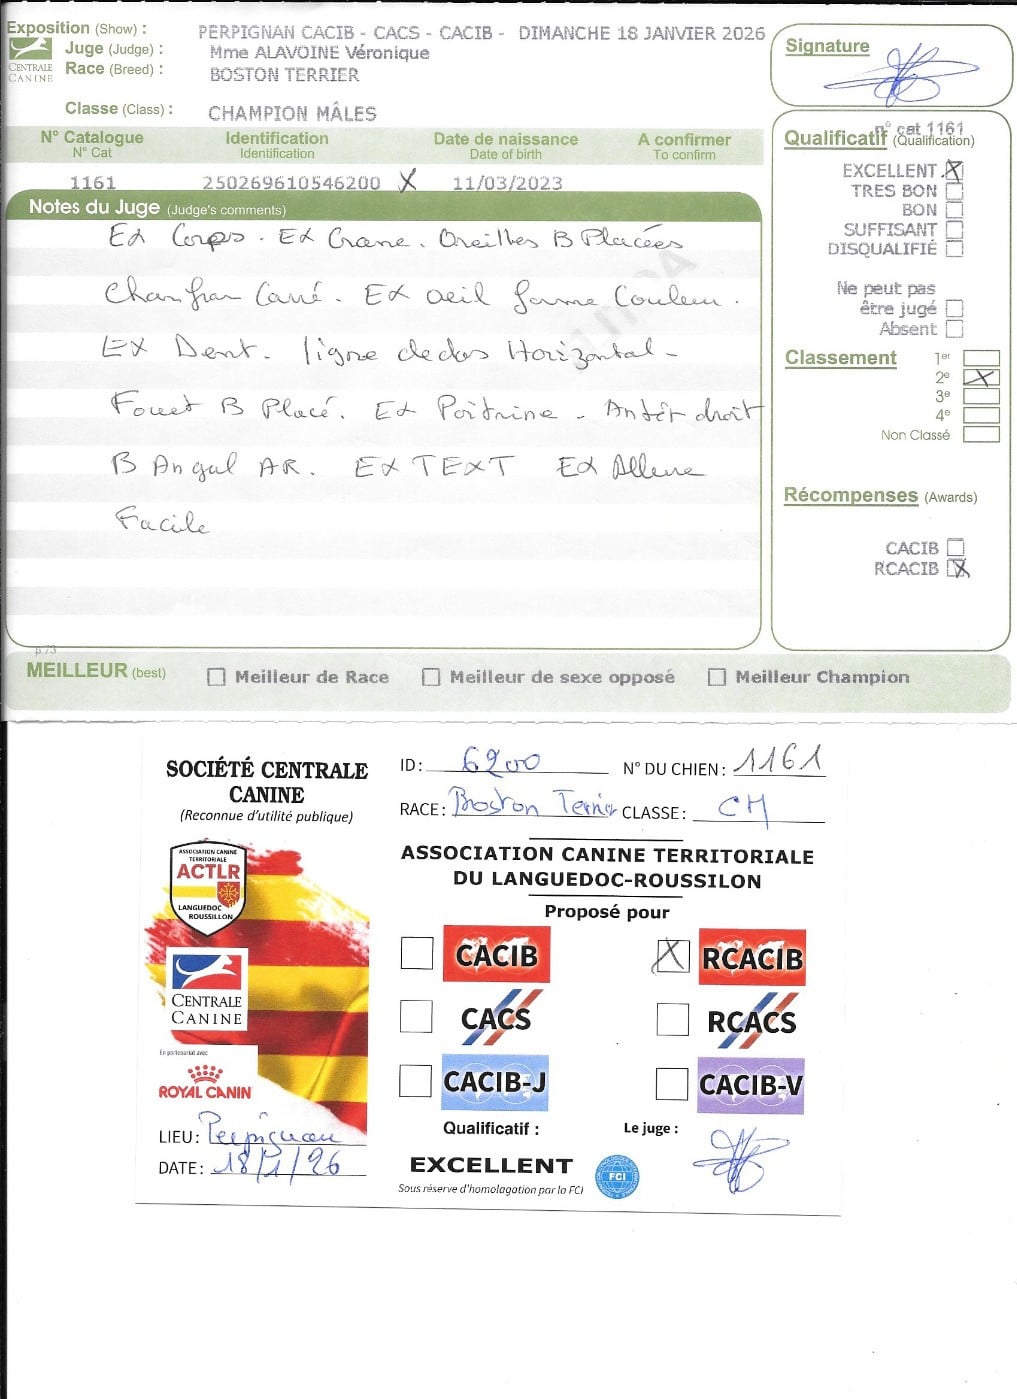 Exposition (Show) : PERPIGNAN CACIB - CACS - CACIB - DIMANCHE 18 JANVIER 2026
Juge (Judge) : Mme ALAVOINE Véronique
CENTRALE CANINE
Race (Breed) : BOSTON TERRIER
Classe (Class) : CHAMPION MÂLES
Signature
N° Catalogue Identification Date de naissance A confirmer
N° Cat Identification Date of birth To confirm
1161 250269610546200 X 11/03/2023
Notes du Juge (Judge's comments)
Ex Corps. Ex Crane. Oreilles B Placées
Chanfran Carré. Ex oeil forme Couleur.
Ex Dent. ligne de dos Horizontal -
Fouet B Placé. Ex Poitrine - Antér droit
B Angul AR. Ex TEXT Ex Allure
Facile
n° cat 1161
Qualificatif (Qualification)
EXCELLENT X
TRES BON
BON
SUFFISANT
DISQUALIFIÉ
Ne peut pas
être jugé
Absent
Classement
1er
2e X
3e
4e
Non Classé
Récompenses (Awards)
CACIB
RCACIB X
p.73
MEILLEUR (best) Meilleur de Race Meilleur de sexe opposé Meilleur Champion
SOCIÉTÉ CENTRALE
CANINE
(Reconnue d'utilité publique)
ASSOCIATION CANINE
TERRITORIALE
ACTLR
LANGUEDOC
ROUSSILLON
CENTRALE
CANINE
En partenariat avec
ROYAL CANIN
LIEU: Perpignan
DATE: 18/1/26
ID: 6200 N° DU CHIEN: 1161
RACE: Boston Terrier CLASSE: CH
ASSOCIATION CANINE TERRITORIALE
DU LANGUEDOC-ROUSSILON
Proposé pour
CACIB X RCACIB
CACS RCACS
CACIB-J CACIB-V
Qualificatif : Le juge :
EXCELLENT
FCI
Sous réserve d'homolagation par la FCI